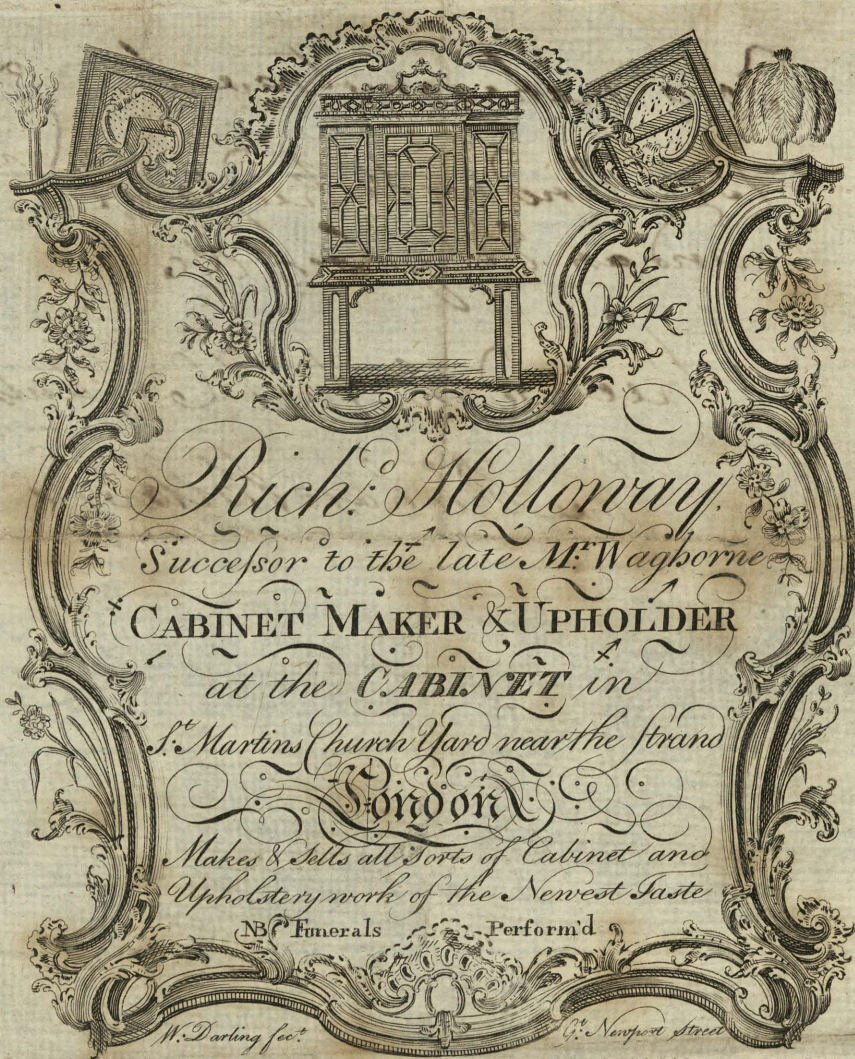 Rich:d Holloway.
Succeſsor to the late M:r Waghorne
CABINET MAKER & UPHOLDER
at the CABINET in
S:t Martins Church Yard near the ſtrand
London
Makes & Sells all Sorts of Cabinet and
Upholstery work of the Newest Taste
NB Funerals Perform'd
W: Darling fec:t G:t Newport Street